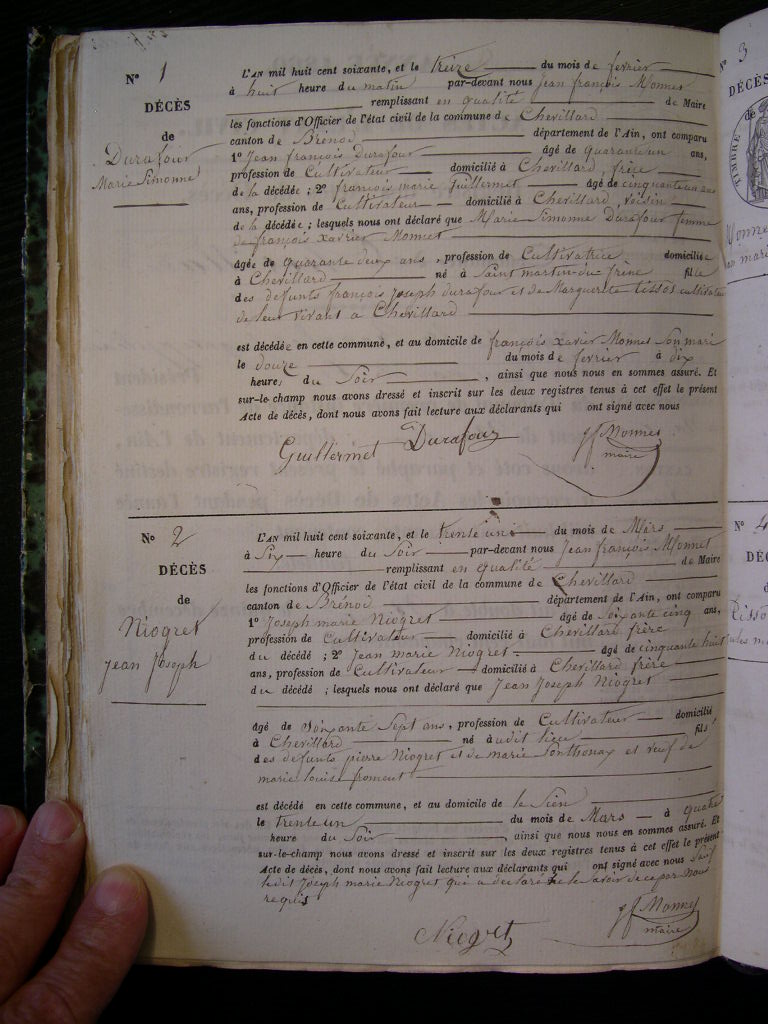 N° 1
DÉCÈS
de
Durafour
Marie Simonne
L'AN mil huit cent soixante, et le treize du mois de février
à huit heure du matin par-devant nous Jean françois Monnet
remplissant en qualité de Maire
les fonctions d'Officier de l'état civil de la commune de Chevillard
canton de Brénod département de l'Ain, ont comparu
1° Jean françois Durafour âgé de quarante un ans,
profession de Cultivateur domicilié à Chevillard, frère
de la décédée; 2° françois marie Guillermet âgé de cinquante un ans
ans, profession de Cultivateur domicilié à Chevillard, voisin
de la décédée; lesquels nous ont déclaré que Marie Simonne Durafour femme
de françois xavier Monnet
âgée de quarante deux ans, profession de Cultivatrice domiciliée
à Chevillard né à Saint martin-du-frêne fille
des défunts françois Joseph durafour et de Marguerite tissot cultivateurs
de leur vivant a Chevillard
est décédée en cette commune, et au domicile de françois xavier Monnet Son mari
le douze du mois de février à dix
heures du Soir, ainsi que nous nous en sommes assuré. Et
sur-le-champ nous avons dressé et inscrit sur les deux registres tenus à cet effet le présent
Acte de décès, dont nous avons fait lecture aux déclarants qui ont signé avec nous
Guillermet Durafour jf Monnet
maire
N° 2
DÉCÈS
de
Niogret
Jean Joseph
L'AN mil huit cent soixante, et le trente un du mois de Mars
à Six heure du Soir par-devant nous Jean françois Monnet
remplissant en qualité de Maire
les fonctions d'Officier de l'état civil de la commune de Chevillard
canton de Brénod département de l'Ain, ont comparu
1° Joseph marie Niogret âgé de Soixante cinq ans,
profession de Cultivateur domicilié à Chevillard frère
du décédé; 2° Jean marie Niogret âgé de cinquante huit
ans, profession de Cultivateur domicilié à Chevillard frère
du décédé; lesquels nous ont déclaré que Jean Joseph Niogret
âgé de Soixante Sept ans, profession de Cultivateur domicilié
à Chevillard né audit lieu fils
des défunts pierre Niogret et de marie Ponthonax et veuf de
marie louise froment
est décédé en cette commune, et au domicile de le Sien
le trente un du mois de Mars à quatre
heure du Soir, ainsi que nous nous en sommes assuré. Et
sur-le-champ nous avons dressé et inscrit sur les deux registres tenus à cet effet le présent
Acte de décès, dont nous avons fait lecture aux déclarants qui ont signé avec nous Sauf
ledit Joseph marie Niogret qui a déclaré ne le Savoir de ce par Nous
requis
Niogret jf Monnet
maire
N° 3
DÉCÈS
de
TIMBRE
N° 4